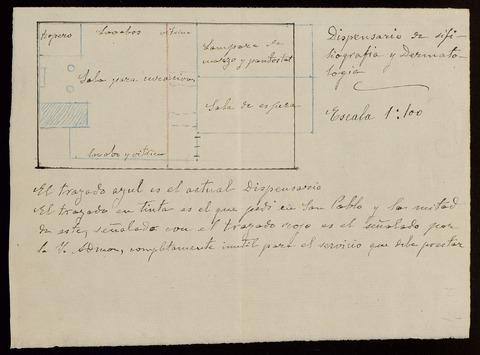 Ropero
Lavabos vitrina
Sala para curaciones
Lavabo y vitrina
Lampara de
cuarzo y pantostat
Sala de espera
Dispensario de sifi-
liografia y Dermato-
logia
Escala 1:100
El trazado azul es el actual Dispensario
El trazado en tinta es el que pedí en San Pablo y la mitad
de este, señalada con el trazado rojo es el señalado por
la Y. Admon, completamente inutil para el servicio que debe prestar